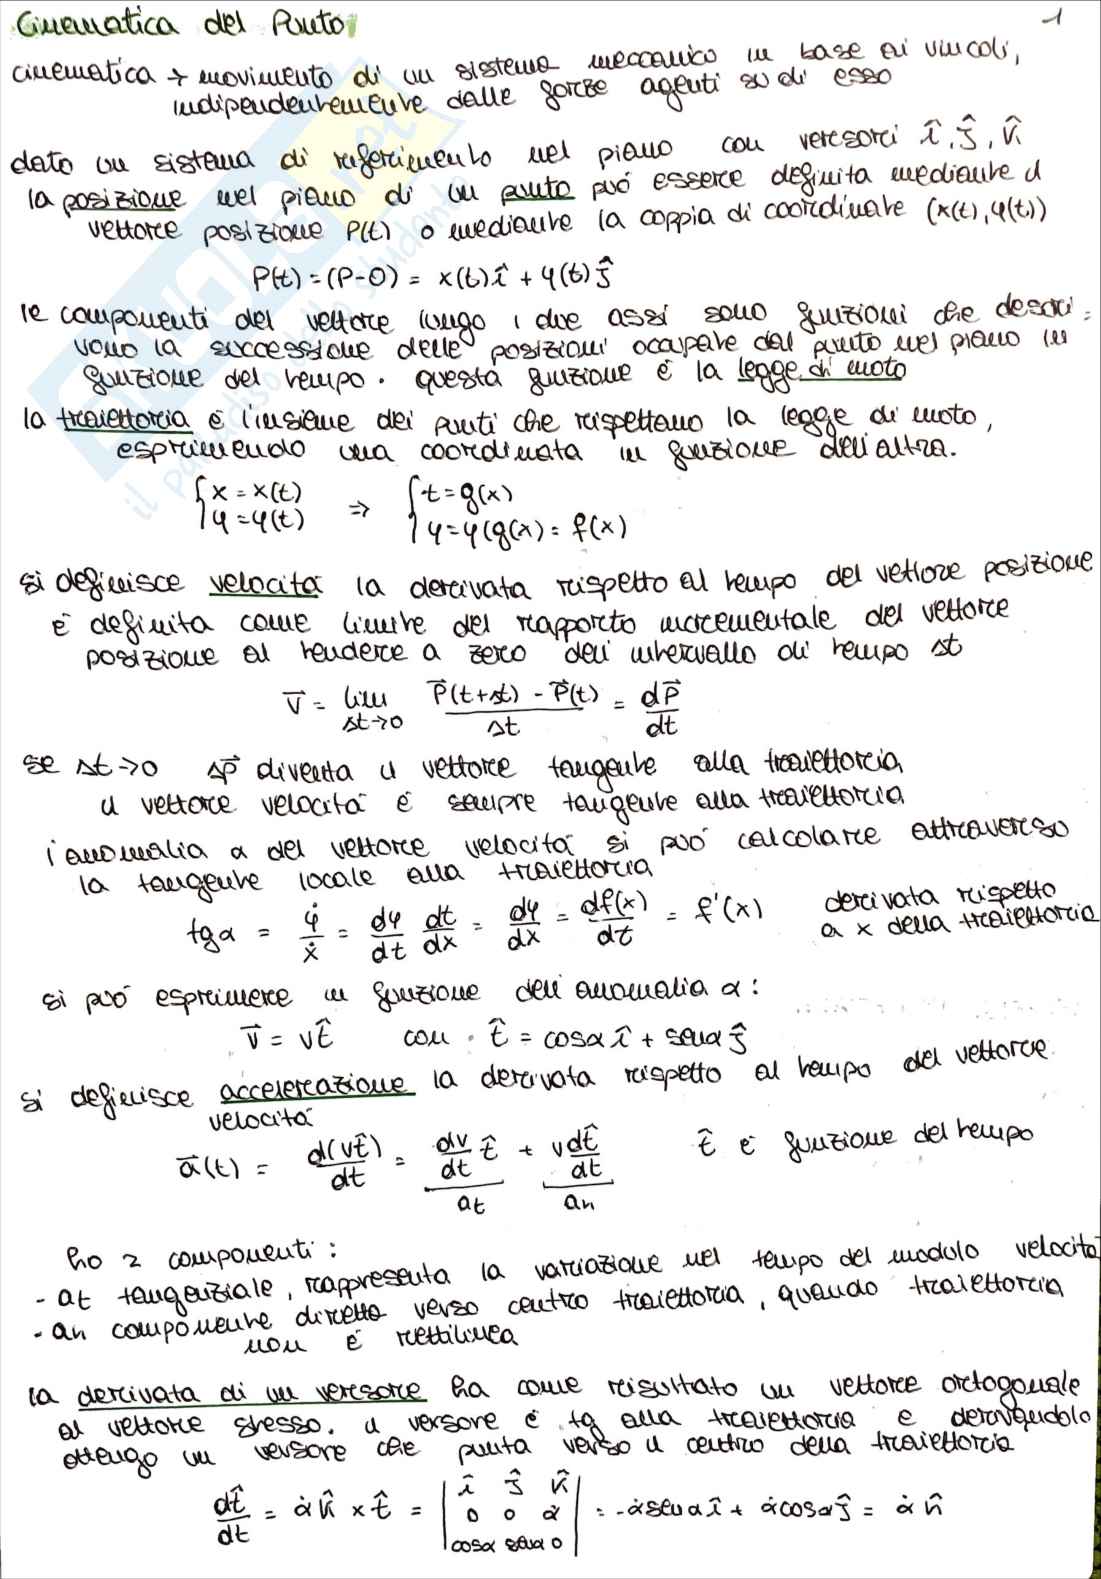 Cinematica del Punto
1
cinematica → movimento di un sistema meccanico in base ai vincoli,
indipendentemente dalle forze agenti su di esso
dato un sistema di riferimento nel piano con versori î, ĵ, k̂
la posizione nel piano di un punto può essere definita mediante il
vettore posizione P(t) o mediante la coppia di coordinate (x(t), y(t))
P(t) = (P-O) = x(t) î + y(t) ĵ
le componenti del vettore lungo i due assi sono funzioni che descri-
vono la successione delle posizioni occupate dal punto nel piano in
funzione del tempo. questa funzione è la legge di moto
la traiettoria è l'insieme dei punti che rispettano la legge di moto,
esprimendo una coordinata in funzione dell'altra.
{ x = x(t) ⇒ { t = g(x)
{ y = y(t) { y = y(g(x) = f(x)
si definisce velocità la derivata rispetto al tempo del vettore posizione
è definita come limite del rapporto incrementale del vettore
posizione al tendere a zero dell'intervallo di tempo Δt
v⃗ = lim Δt→0 (P⃗(t+Δt) - P⃗(t))/Δt = dP⃗/dt
se Δt→0 ΔP⃗ diventa il vettore tangente alla traiettoria
il vettore velocità è sempre tangente alla traiettoria
l'anomalia α del vettore velocità si può calcolare attraverso
la tangente locale alla traiettoria
tgα = ẏ/ẋ = dy/dt dt/dx = dy/dx = df(x)/dt = f'(x) derivata rispetto
a x della traiettoria
si può esprimere in funzione dell'anomalia α:
v⃗ = v t̂ con t̂ = cosα î + senα ĵ
si definisce accelerazione la derivata rispetto al tempo del vettore
velocità
a⃗(t) = d(v t̂)/dt = dv/dt t̂ + v dt̂/dt t̂ è funzione del tempo
at an
ho 2 componenti:
- at tangenziale, rappresenta la variazione nel tempo del modulo velocità
- an componente diretta verso centro traiettoria, quando traiettoria
non è rettilinea
la derivata di un versore ha come risultato un vettore ortogonale
al vettore stesso. il versore è tg alla traiettoria e derivandolo
ottengo un versore che punta verso il centro della traiettoria
dt̂/dt = α̇ k̂ × t̂ = | î ĵ k̂ | 0 0 α̇ | cosα senα 0 | = -α̇ senα î + α̇ cosα ĵ = α̇ n̂